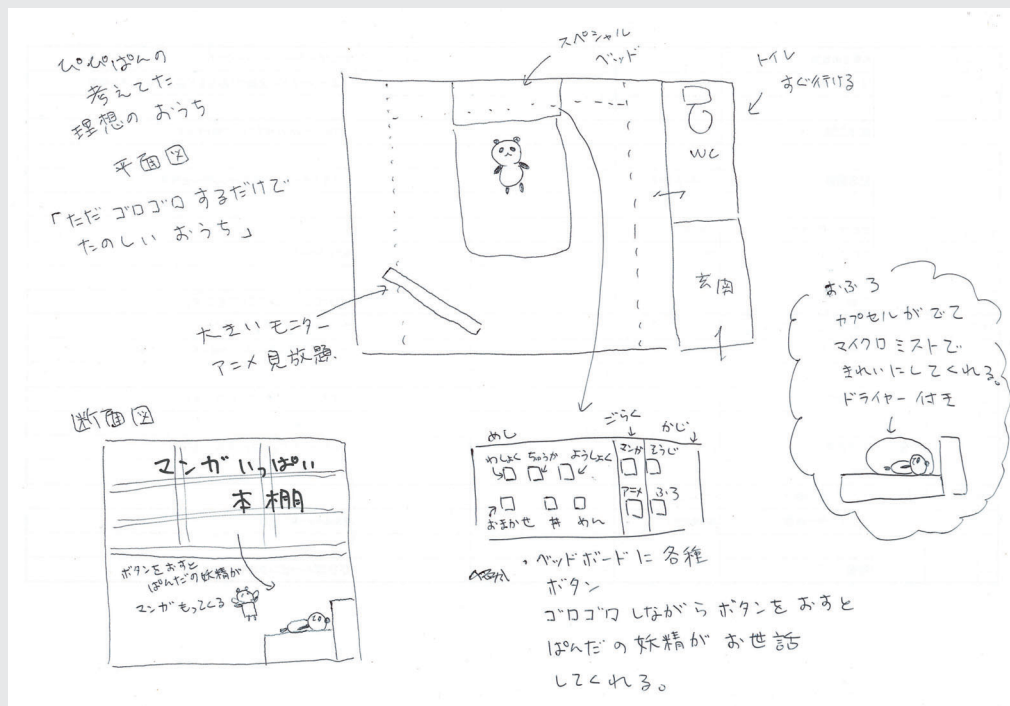 ぴぴぱんの
考えてた
理想の おうち
平面図
「ただ ゴロゴロ するだけで
たのしい おうち」
スペシャル
ベッド
トイレ
すぐ行ける
WC
玄関
大きい モニター
アニメ 見放題
おふろ
カプセルがでて
マイクロミストで
きれいにしてくれる。
ドライヤー付き
断面図
マンガ いっぱい
本棚
ボタンをおすと
ぱんだの妖精が
マンガ もってくる
めし
ごらく
かじ
わしょく ちゅうか ようしょく
マンガ
そうじ
アニメ
ふろ
おまかせ 丼 めん
・ベッドボードに 各種
ボタン
ゴロゴロ しながら ボタンを おすと
ぱんだ の 妖精が お世話
してくれる。